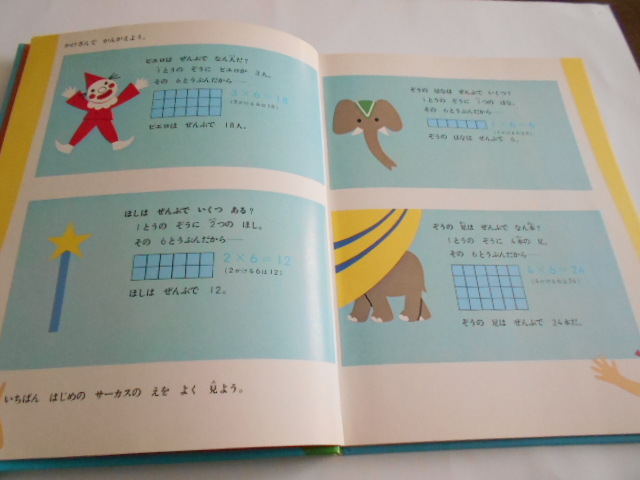 かけざんで かんがえよう。
ピエロは ぜんぶで なん人だ?
1とうの ぞうに ピエロが 3人。
その 6とうぶんだから……
3×6=18
(3かける6は18)
ピエロは ぜんぶで 18人。
ほしは ぜんぶで いくつ ある?
1とうの ぞうに 2つの ほし。
その 6とうぶんだから……
2×6=12
(2かける6は12)
ほしは ぜんぶで 12。
いちばん はじめの サーカスの えを よく 見よう。
ぞうの はなは ぜんぶで いくつ?
1とうの ぞうに 1つの はな。
その 6とうぶんだから……
1×6=6
(1かける6は6)
ぞうの はなは ぜんぶで 6。
ぞうの 足は ぜんぶで なん本?
1とうの ぞうに 4本の 足。
その 6とうぶんだから……
4×6=24
(4かける6は24)
ぞうの 足は ぜんぶで 24本だ。